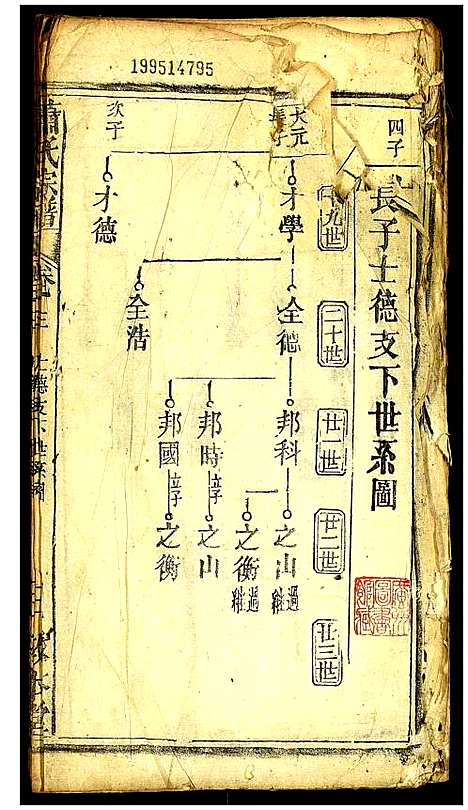 199514795
四子
長子士德支下世系圖
十九世
二十世
廿一世
廿二世
廿三世
大元
長子
才學
全德
邦科
之山 過継
之衡 過継
邦時 立子
之山
邦國 立子
之衡
全浩
次子
才德
蕭氏宗譜
卷之三
士德支下世系圖